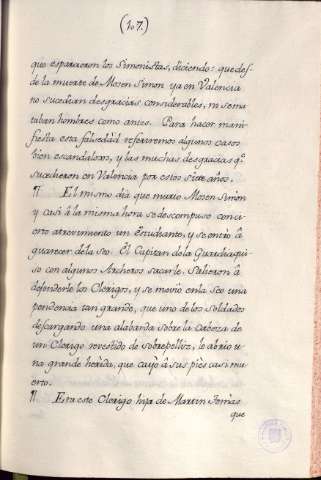 (107.)
que esparcieron los Simonistas, diciendo: que des-
de la muerte de Mosen Simon ya en Valencia
no sucedian desgracias considerables, ni se ma
taban hombres como antes. Para hacer mani
fiesta esta falsedad referiremos algunos casos
bien escandalosos, y las muchas desgracias q.e
sucedieron en Valencia por estos siete años.
¶ El mismo dia que murio Mosen Simon
y casi â la misma hora se descompuso con ci-
erto atrevimiento un Estudiante, y se entrò â
guarecer de la Seo. El Capitan de la Guardia qui
so con algunos Archeros sacarle, Salieron â
defenderle los Clerigos, y se moviò en la Seo una
pendencia tan grande, que uno de los Soldados
descargando una alabarda sobre la cabeza de
un Clerigo revestido de sobrepelliz, le abrio u
na grande herida, que cayò â sus pies casi mu
erto.
¶ Era este Clerigo hijo de Martin Torras
que